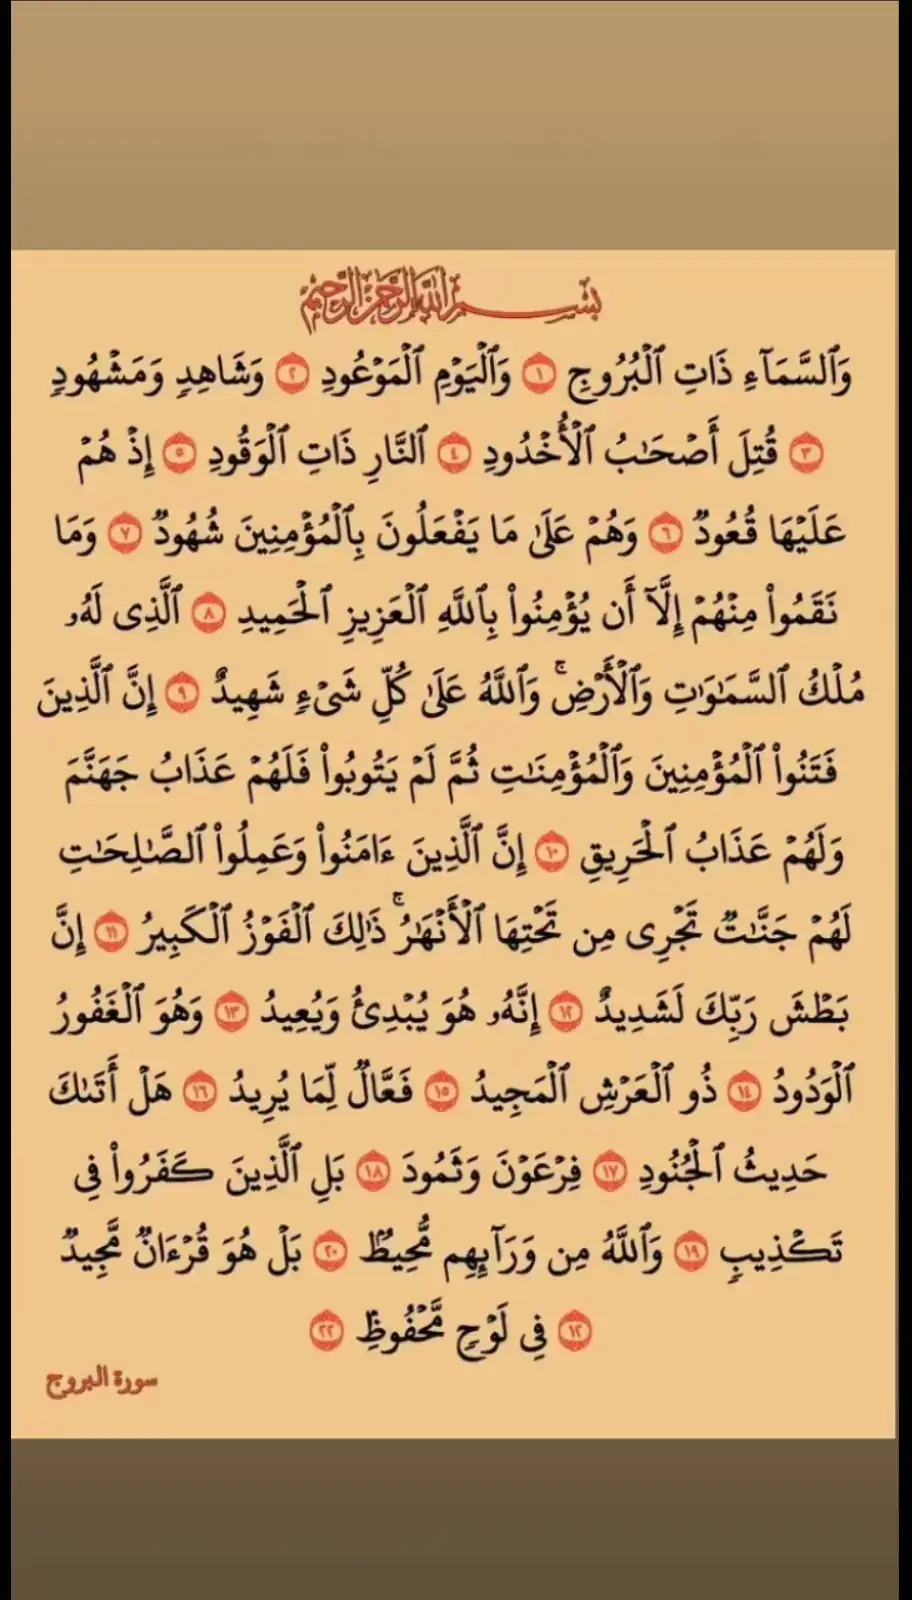 بِسْمِ ٱللَّهِ ٱلرَّحْمَٰنِ ٱلرَّحِيمِ
وَٱلسَّمَآءِ ذَاتِ ٱلْبُرُوجِ ١ وَٱلْيَوْمِ ٱلْمَوْعُودِ ٢ وَشَاهِدٍ وَمَشْهُودٍ
٣ قُتِلَ أَصْحَٰبُ ٱلْأُخْدُودِ ٤ ٱلنَّارِ ذَاتِ ٱلْوَقُودِ ٥ إِذْ هُمْ
عَلَيْهَا قُعُودٌ ٦ وَهُمْ عَلَىٰ مَا يَفْعَلُونَ بِٱلْمُؤْمِنِينَ شُهُودٌ ٧ وَمَا
نَقَمُوا۟ مِنْهُمْ إِلَّآ أَن يُؤْمِنُوا۟ بِٱللَّهِ ٱلْعَزِيزِ ٱلْحَمِيدِ ٨ ٱلَّذِى لَهُۥ
مُلْكُ ٱلسَّمَٰوَٰتِ وَٱلْأَرْضِ ۚ وَٱللَّهُ عَلَىٰ كُلِّ شَىْءٍ شَهِيدٌ ٩ إِنَّ ٱلَّذِينَ
فَتَنُوا۟ ٱلْمُؤْمِنِينَ وَٱلْمُؤْمِنَٰتِ ثُمَّ لَمْ يَتُوبُوا۟ فَلَهُمْ عَذَابُ جَهَنَّمَ
وَلَهُمْ عَذَابُ ٱلْحَرِيقِ ١٠ إِنَّ ٱلَّذِينَ ءَامَنُوا۟ وَعَمِلُوا۟ ٱلصَّٰلِحَٰتِ
لَهُمْ جَنَّٰتٌ تَجْرِى مِن تَحْتِهَا ٱلْأَنْهَٰرُ ۚ ذَٰلِكَ ٱلْفَوْزُ ٱلْكَبِيرُ ١١ إِنَّ
بَطْشَ رَبِّكَ لَشَدِيدٌ ١٢ إِنَّهُۥ هُوَ يُبْدِئُ وَيُعِيدُ ١٣ وَهُوَ ٱلْغَفُورُ
ٱلْوَدُودُ ١٤ ذُو ٱلْعَرْشِ ٱلْمَجِيدُ ١٥ فَعَّالٌ لِّمَا يُرِيدُ ١٦ هَلْ أَتَىٰكَ
حَدِيثُ ٱلْجُنُودِ ١٧ فِرْعَوْنَ وَثَمُودَ ١٨ بَلِ ٱلَّذِينَ كَفَرُوا۟ فِى
تَكْذِيبٍ ١٩ وَٱللَّهُ مِن وَرَآئِهِم مُّحِيطٌۢ ٢٠ بَلْ هُوَ قُرْءَانٌ مَّجِيدٌ
١٢ فِى لَوْحٍ مَّحْفُوظٍۭ ٢٢
سورة البروج